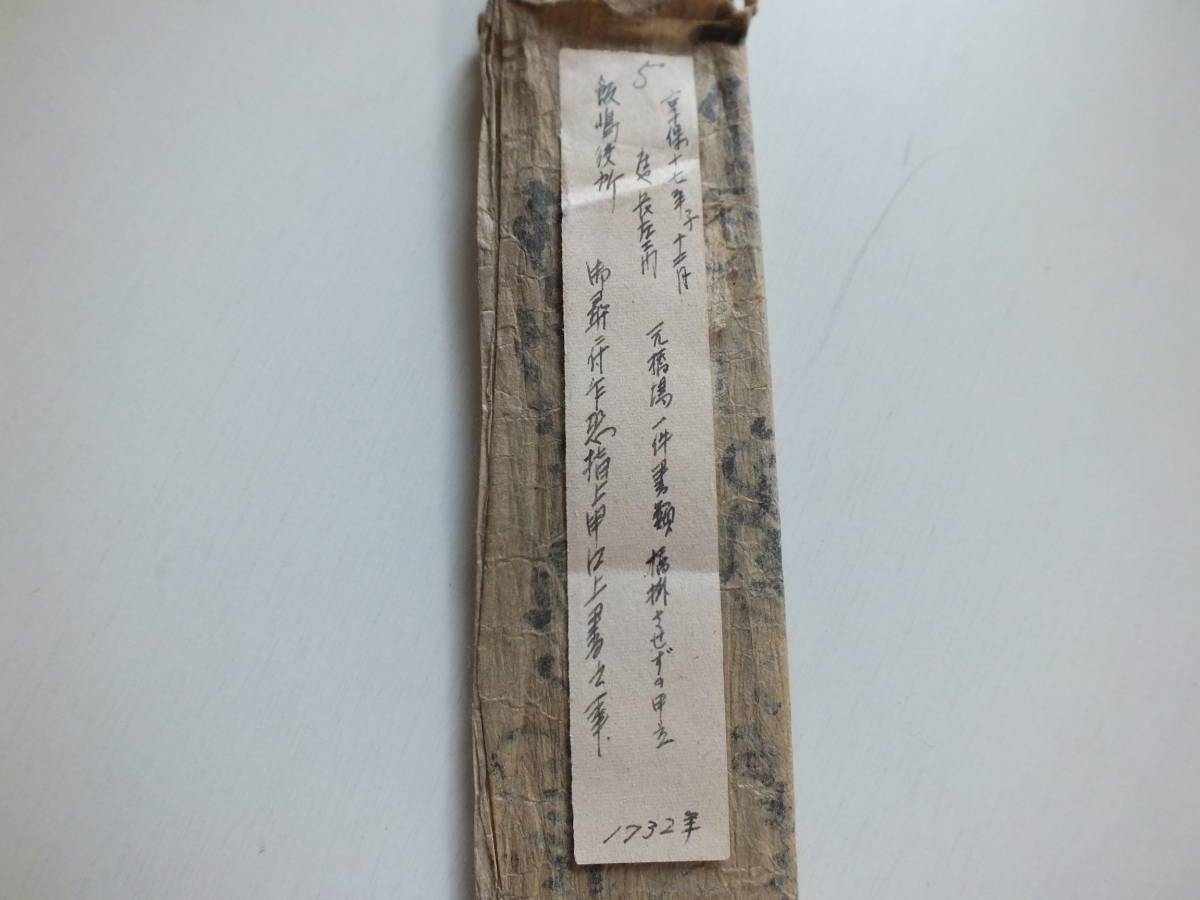 5
享保十七年子十二月
庄屋 長左エ門
元橋場一件書類 橋掛させずの申立
飯嶋役所
御尋ニ付乍恐指上申口上書之事
1732年